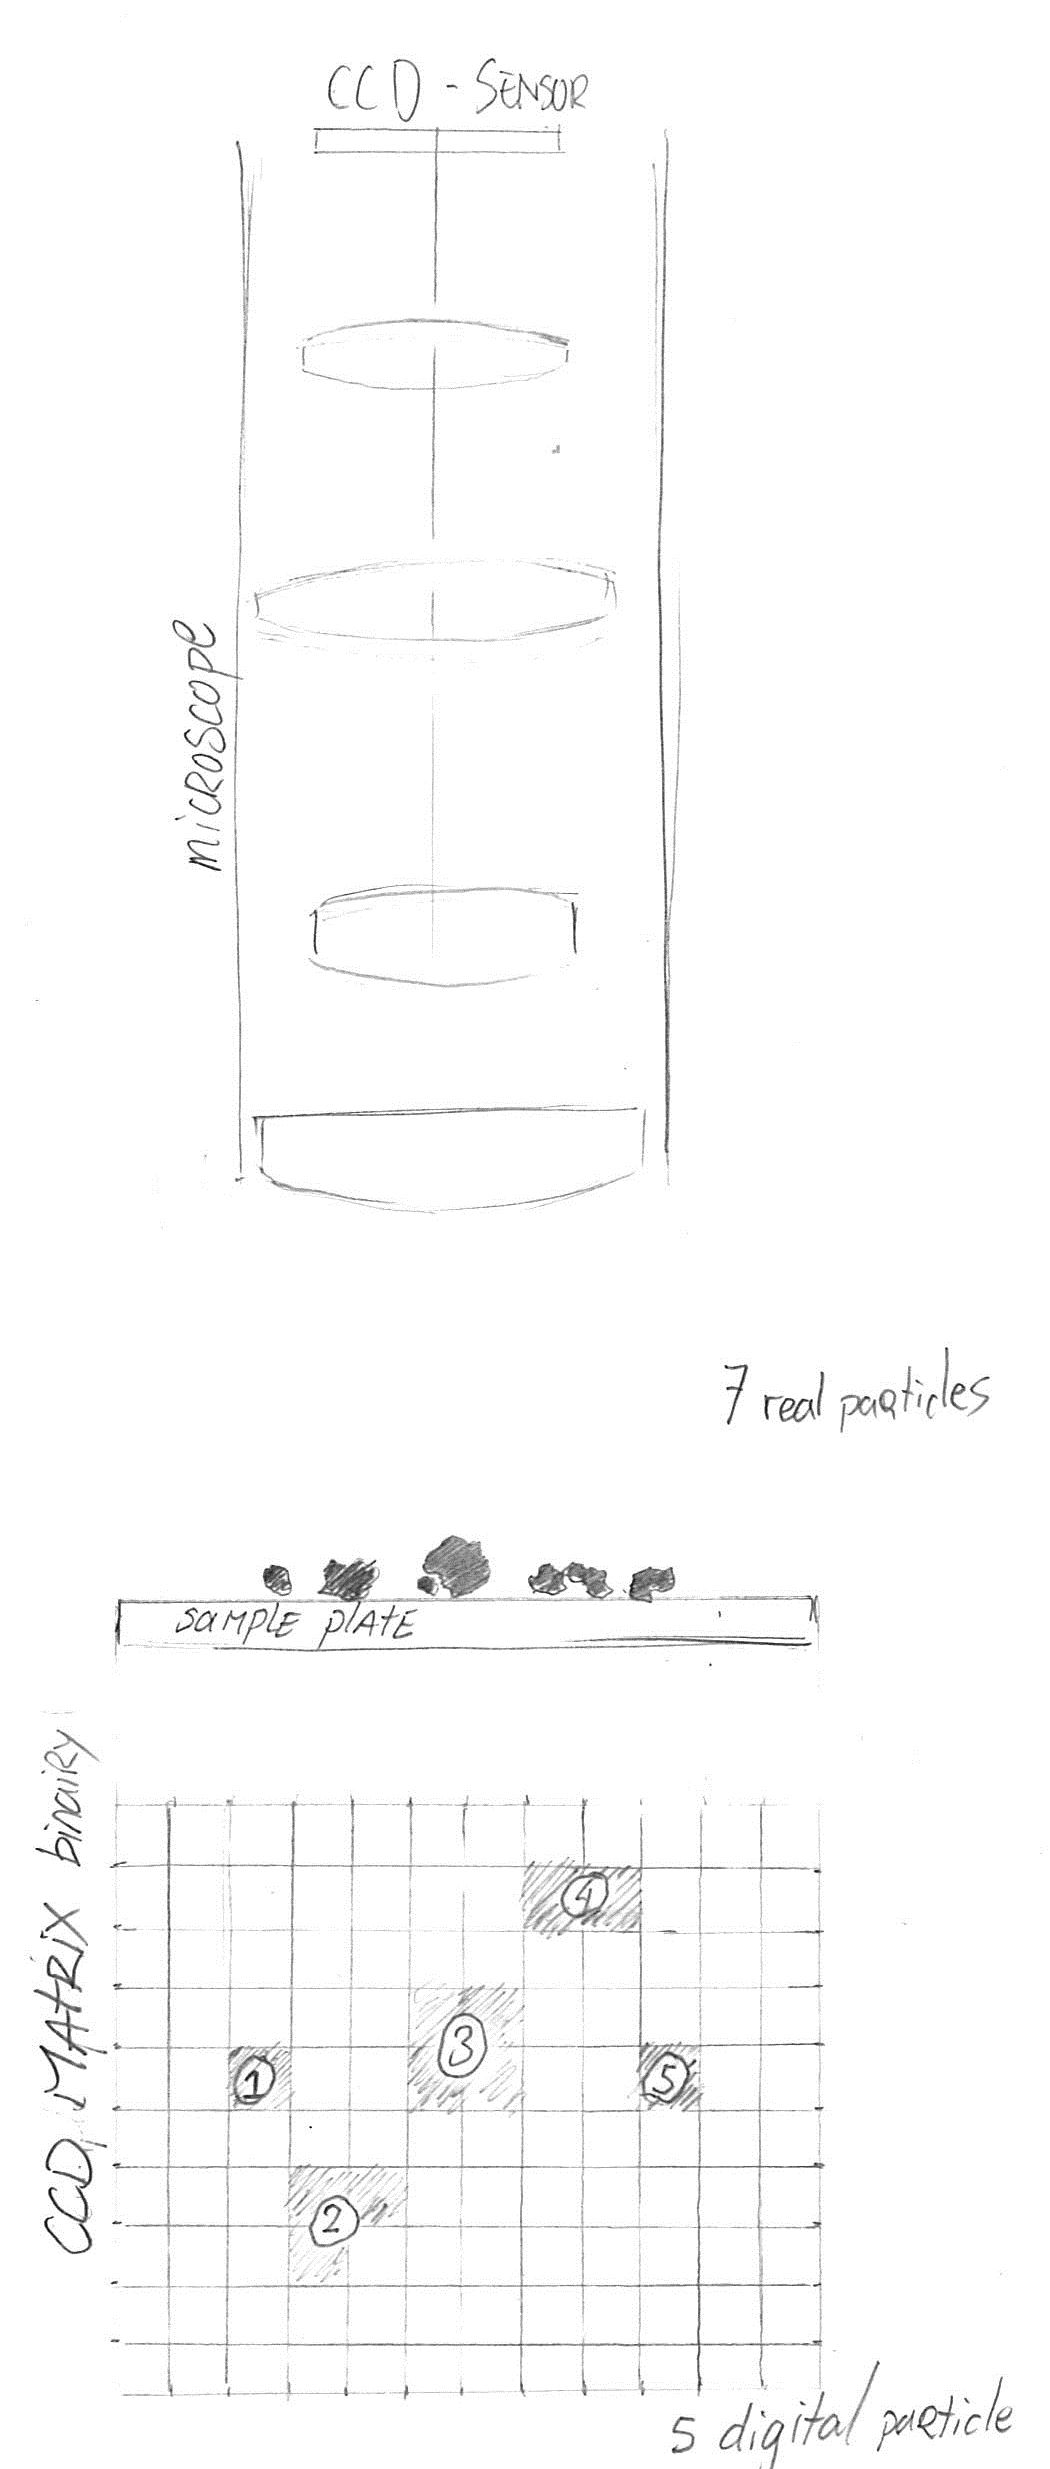 CCD - SENSOR
microscope
7 real particles
sample plate
CCD MATRIX binairy
4
3
1
5
2
5 digital particle